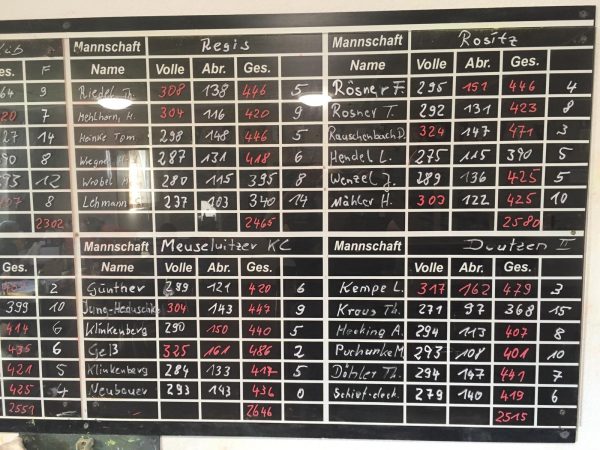 Mannschaft Regis
Name Volle Abr. Ges.
Riedel Th. 308 138 446 5
Mehlhorn, H. 304 116 420 9
Heinke Tpm. 298 148 446 5
287 131 418 6
Wrobel 280 115 395 8
Lehmann 237 103 340 14
2465
Mannschaft Rositz
Name Volle Abr. Ges.
Rösner F. 295 151 446 4
Rösner T. 292 131 423 8
Rauschenbach D. 324 147 471 3
Hendel L. 275 115 390 5
Wenzel J. 289 136 425 5
Mähler H. 303 122 425 10
2580
es. F
64 9
20 7
27 14
90 8
293 12
8
2302
Mannschaft Meuselwitzer KC
Name Volle Abr. Ges.
Günther 299 121 420 6
304 143 447 9
Klinkenberg 290 150 440 5
Geiß 325 161 486 2
Klinkenberg 284 133 417 5
Neubauer 293 143 436 0
2646
Mannschaft Deutzen II
Name Volle Abr. Ges.
Kempe L. 317 162 479 3
Kraus Th. 271 97 368 15
Hecking A. 294 113 407 8
Puchunke M. 293 108 401 10
Döhler Th. 294 147 441 7
279 140 419 6
2515
Ges.
2
399 10
414 6
435 6
421 5
425 4
2551